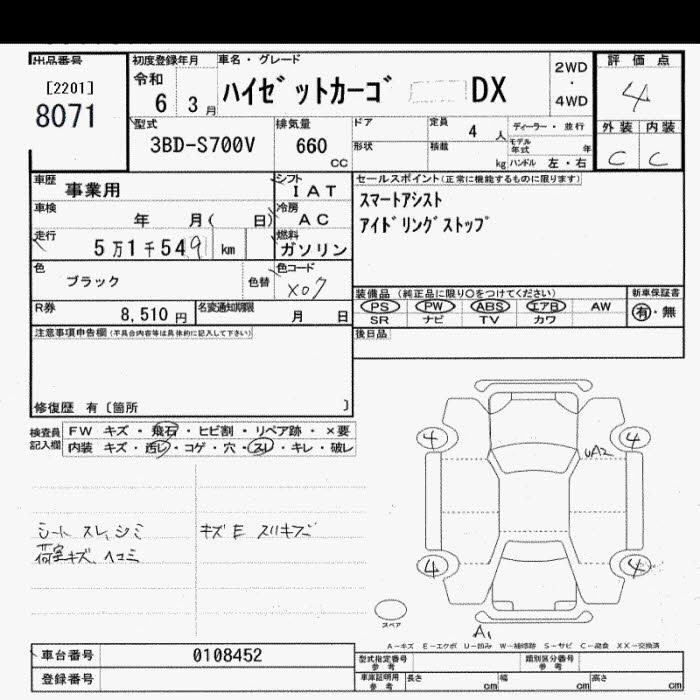 出品番号
[2201]
8071
初度登録年月
令和
6 3 月
車名・グレード
ハイゼットカーゴ DX
2WD
・
4WD
評価点
4
外装 内装
C C
型式
3BD-S700V
排気量
660
CC
ドア
形状
定員
4 人
積載
kg
ディーラー・並行
モデル年式 年
ハンドル 左・右
車歴 事業用
シフト
I AT
車検
年 月( 日)
冷房
AC
走行
5万1千549 km
燃料
ガソリン
色
ブラック
色替
色コード
X07
R券
8,510 円
名変通知期限
月 日
セールスポイント(正常に機能するものに限ります)
スマートアシスト
アイドリングストップ
装備品 (純正品に限り○をつけてください)
PS PW ABS エアB AW
SR ナビ TV カワ
新車保証書
有・無
後日品
注意事項申告欄(不具合内容等は具体的に記入して下さい)
修復歴 有〔箇所 〕
検査員
記入欄
FW キズ・飛石・ヒビ割・リペア跡・×要
内装 キズ・汚レ・コゲ・穴・スレ・キレ・破レ
シート スレ、シミ
荷室キズ、ヘコミ
キズE スリキズ
4
4
UA2
4
4
スペア
A1
A−キズ E−エクボ U−凹み W−補修跡 S−サビ C−腐食 XX−交換済
車台番号 0108452
登録番号
型式指定番号
参考
類別区分番号
参考
車庫証明用
参考
長さ cm
幅 cm
高さ cm